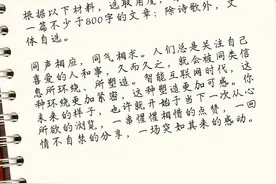 根据以下材料，选取角度，
一篇不少于800字的文章；除诗歌外，文
体自选。
同声相应，同气相求。人们总是关注自己
喜爱的人和事，久而久之，就会被同类信
息所环绕、所塑造。智能互联网时代，这
种环绕更加紧密，这种塑造更加可感。你
未来的样子，也许就开始于当下一次从心
所欲的浏览，一串惺惺相惜的点赞，一回
情不自禁的分享，一场突如其来的感动。